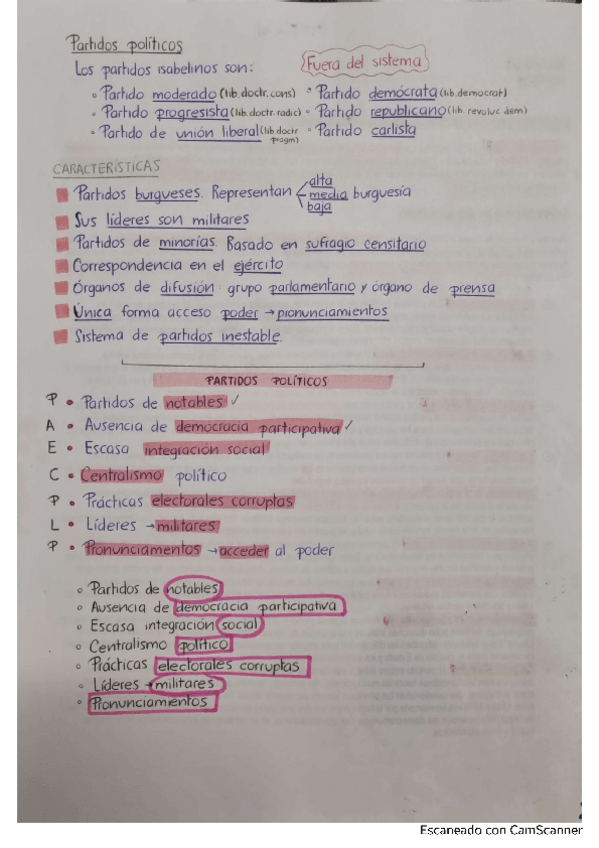 Partidos políticos
Los partidos isabelinos son:
Fuera del sistema
◦ Partido moderado (lib. doctr. cons)
◦ Partido progresista (lib. doctr. radic)
◦ Partido de unión liberal (lib. doctr pragm)
◦ Partido demócrata (lib. democrat)
◦ Partido republicano (lib. revoluc dem)
◦ Partido carlista
CARACTERÍSTICAS
Partidos burgueses. Representan alta media baja burguesía
Sus líderes son militares
Partidos de minorías. Basado en sufragio censitario
Correspondencia en el ejército
Órganos de difusión: grupo parlamentario y órgano de prensa
Única forma acceso poder → pronunciamientos
Sistema de partidos inestable.
PARTIDOS POLÍTICOS
P • Partidos de notables ✓
A • Ausencia de democracia participativa ✓
E • Escasa integración social
C • Centralismo político
P • Prácticas electorales corruptas
L • Líderes → militares
P • Pronunciamentos → acceder al poder
◦ Partidos de notables
◦ Ausencia de democracia participativa
◦ Escasa integración social
◦ Centralismo político
◦ Prácticas electorales corruptas
◦ Líderes → militares
◦ Pronunciamientos
Escaneado con CamScanner